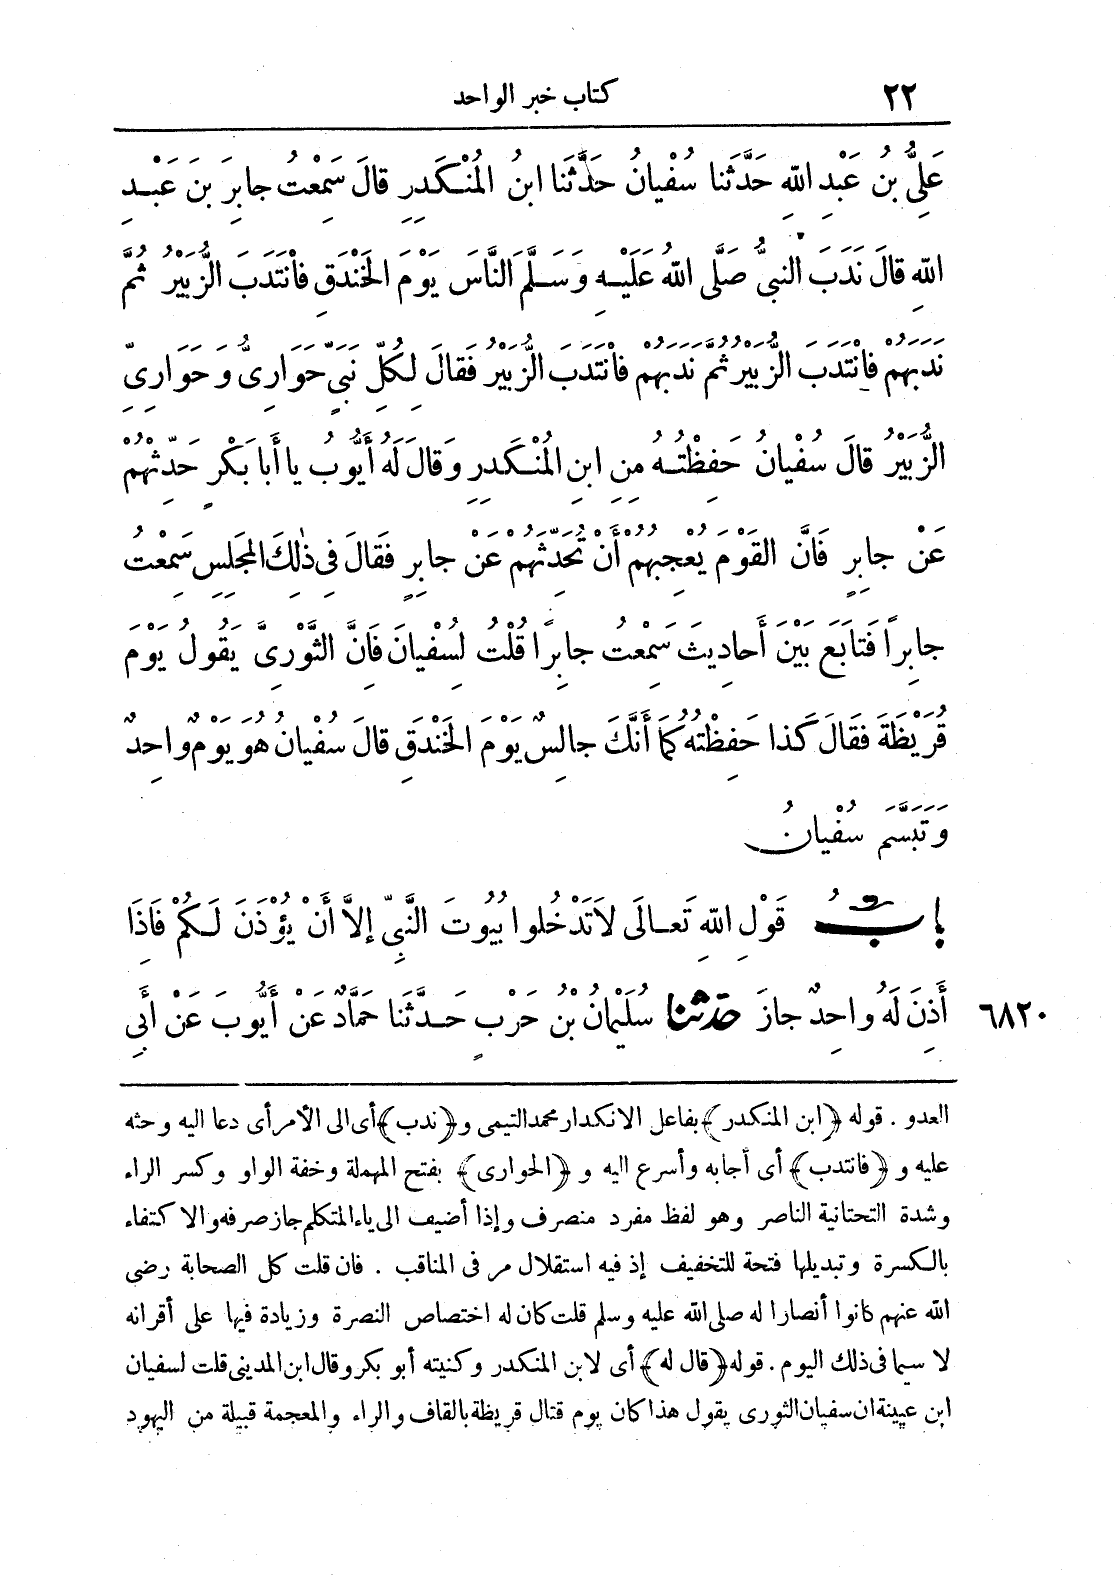 ٢٢ كتاب خبر الواحد
عَلِىُّ بنُ عَبْدِ اللهِ حَدَّثَنا سُفْيانُ حَدَّثَنا ابنُ المُنْكَدِرِ قالَ سَمِعْتُ جابِرَ بنَ عَبْدِ
اللهِ قالَ نَدَبَ النبىُّ صَلَّى اللهُ عَلَيْهِ وَسَلَّمَ النَّاسَ يَوْمَ الخَنْدَقِ فانْتَدَبَ الزُّبَيْرُ ثُمَّ
نَدَبَهُمْ فانْتَدَبَ الزُّبَيْرُ ثُمَّ نَدَبَهُمْ فانْتَدَبَ الزُّبَيْرُ فَقالَ لِكُلِّ نَبِىٍّ حَوَارِىٌّ وَحَوَارِىَّ
الزُّبَيْرُ قالَ سُفْيانُ حَفِظْتُهُ مِنِ ابنِ المُنْكَدِرِ وَقالَ لَهُ أَيُّوبُ يا أَبا بَكْرٍ حَدِّثْهُمْ
عَنْ جابِرٍ فَانَّ القَوْمَ يُعْجِبُهُمْ أَنْ تُحَدِّثَهُمْ عَنْ جابِرٍ فَقالَ فى ذٰلِكَ المَجْلِسِ سَمِعْتُ
جابِراً فَتابَعَ بَيْنَ أَحادِيثَ سَمِعْتُ جابِراً قُلْتُ لِسُفْيانَ فَانَّ الثَّوْرِىَّ يَقُولُ يَوْمَ
قُرَيْظَةَ فَقالَ كَذا حَفِظْتُهُ كَما أَنَّكَ جالِسٌ يَوْمَ الخَنْدَقِ قالَ سُفْيانُ هُوَ يَوْمٌ واحِدٌ
وَتَبَسَّمَ سُفْيانُ
بابُ قَوْلِ اللهِ تَعالَى لاَتَدْخُلوا بُيُوتَ النَّبِىِّ إلاَّ أَنْ يُؤْذَنَ لَكُمْ فَاذَا
أَذِنَ لَهُ واحِدٌ جازَ حَدَّثَنا سُلَيْمانُ بنُ حَرْبٍ حَدَّثَنا حَمَّادٌ عَنْ أَيُّوبَ عَنْ أَبِى ٦٨٢٠
العدو . قوله ﴿ابن المنكدر﴾ بفاعل الانكدار محمد التيمى و ﴿ندب﴾ أى الى الأمر أى دعا اليه وحثه
عليه و ﴿فانتدب﴾ أى أجابه وأسرع اليه و ﴿الحوارى﴾ بفتح المهملة وخفة الواو وكسر الراء
وشدة التحتانية الناصر وهو لفظ مفرد منصرف وإذا أضيف الى ياء المتكلم جاز صرفه والاكتفاء
بالكسرة وتبديلها فتحة للتخفيف إذ فيه استقلال مر فى المناقب . فان قلت كل الصحابة رضى
الله عنهم كانوا أنصارا له صلى الله عليه وسلم قلت كان له اختصاص النصرة وزيادة فيها على أقرانه
لا سيما فى ذلك اليوم . قوله ﴿قال له﴾ أى لابن المنكدر وكنيته أبو بكر وقال ابن المدينى قلت لسفيان
ابن عيينة ان سفيان الثورى يقول هذا كان يوم قتال قريظة بالقاف والراء والمعجمة قبيلة من اليهود